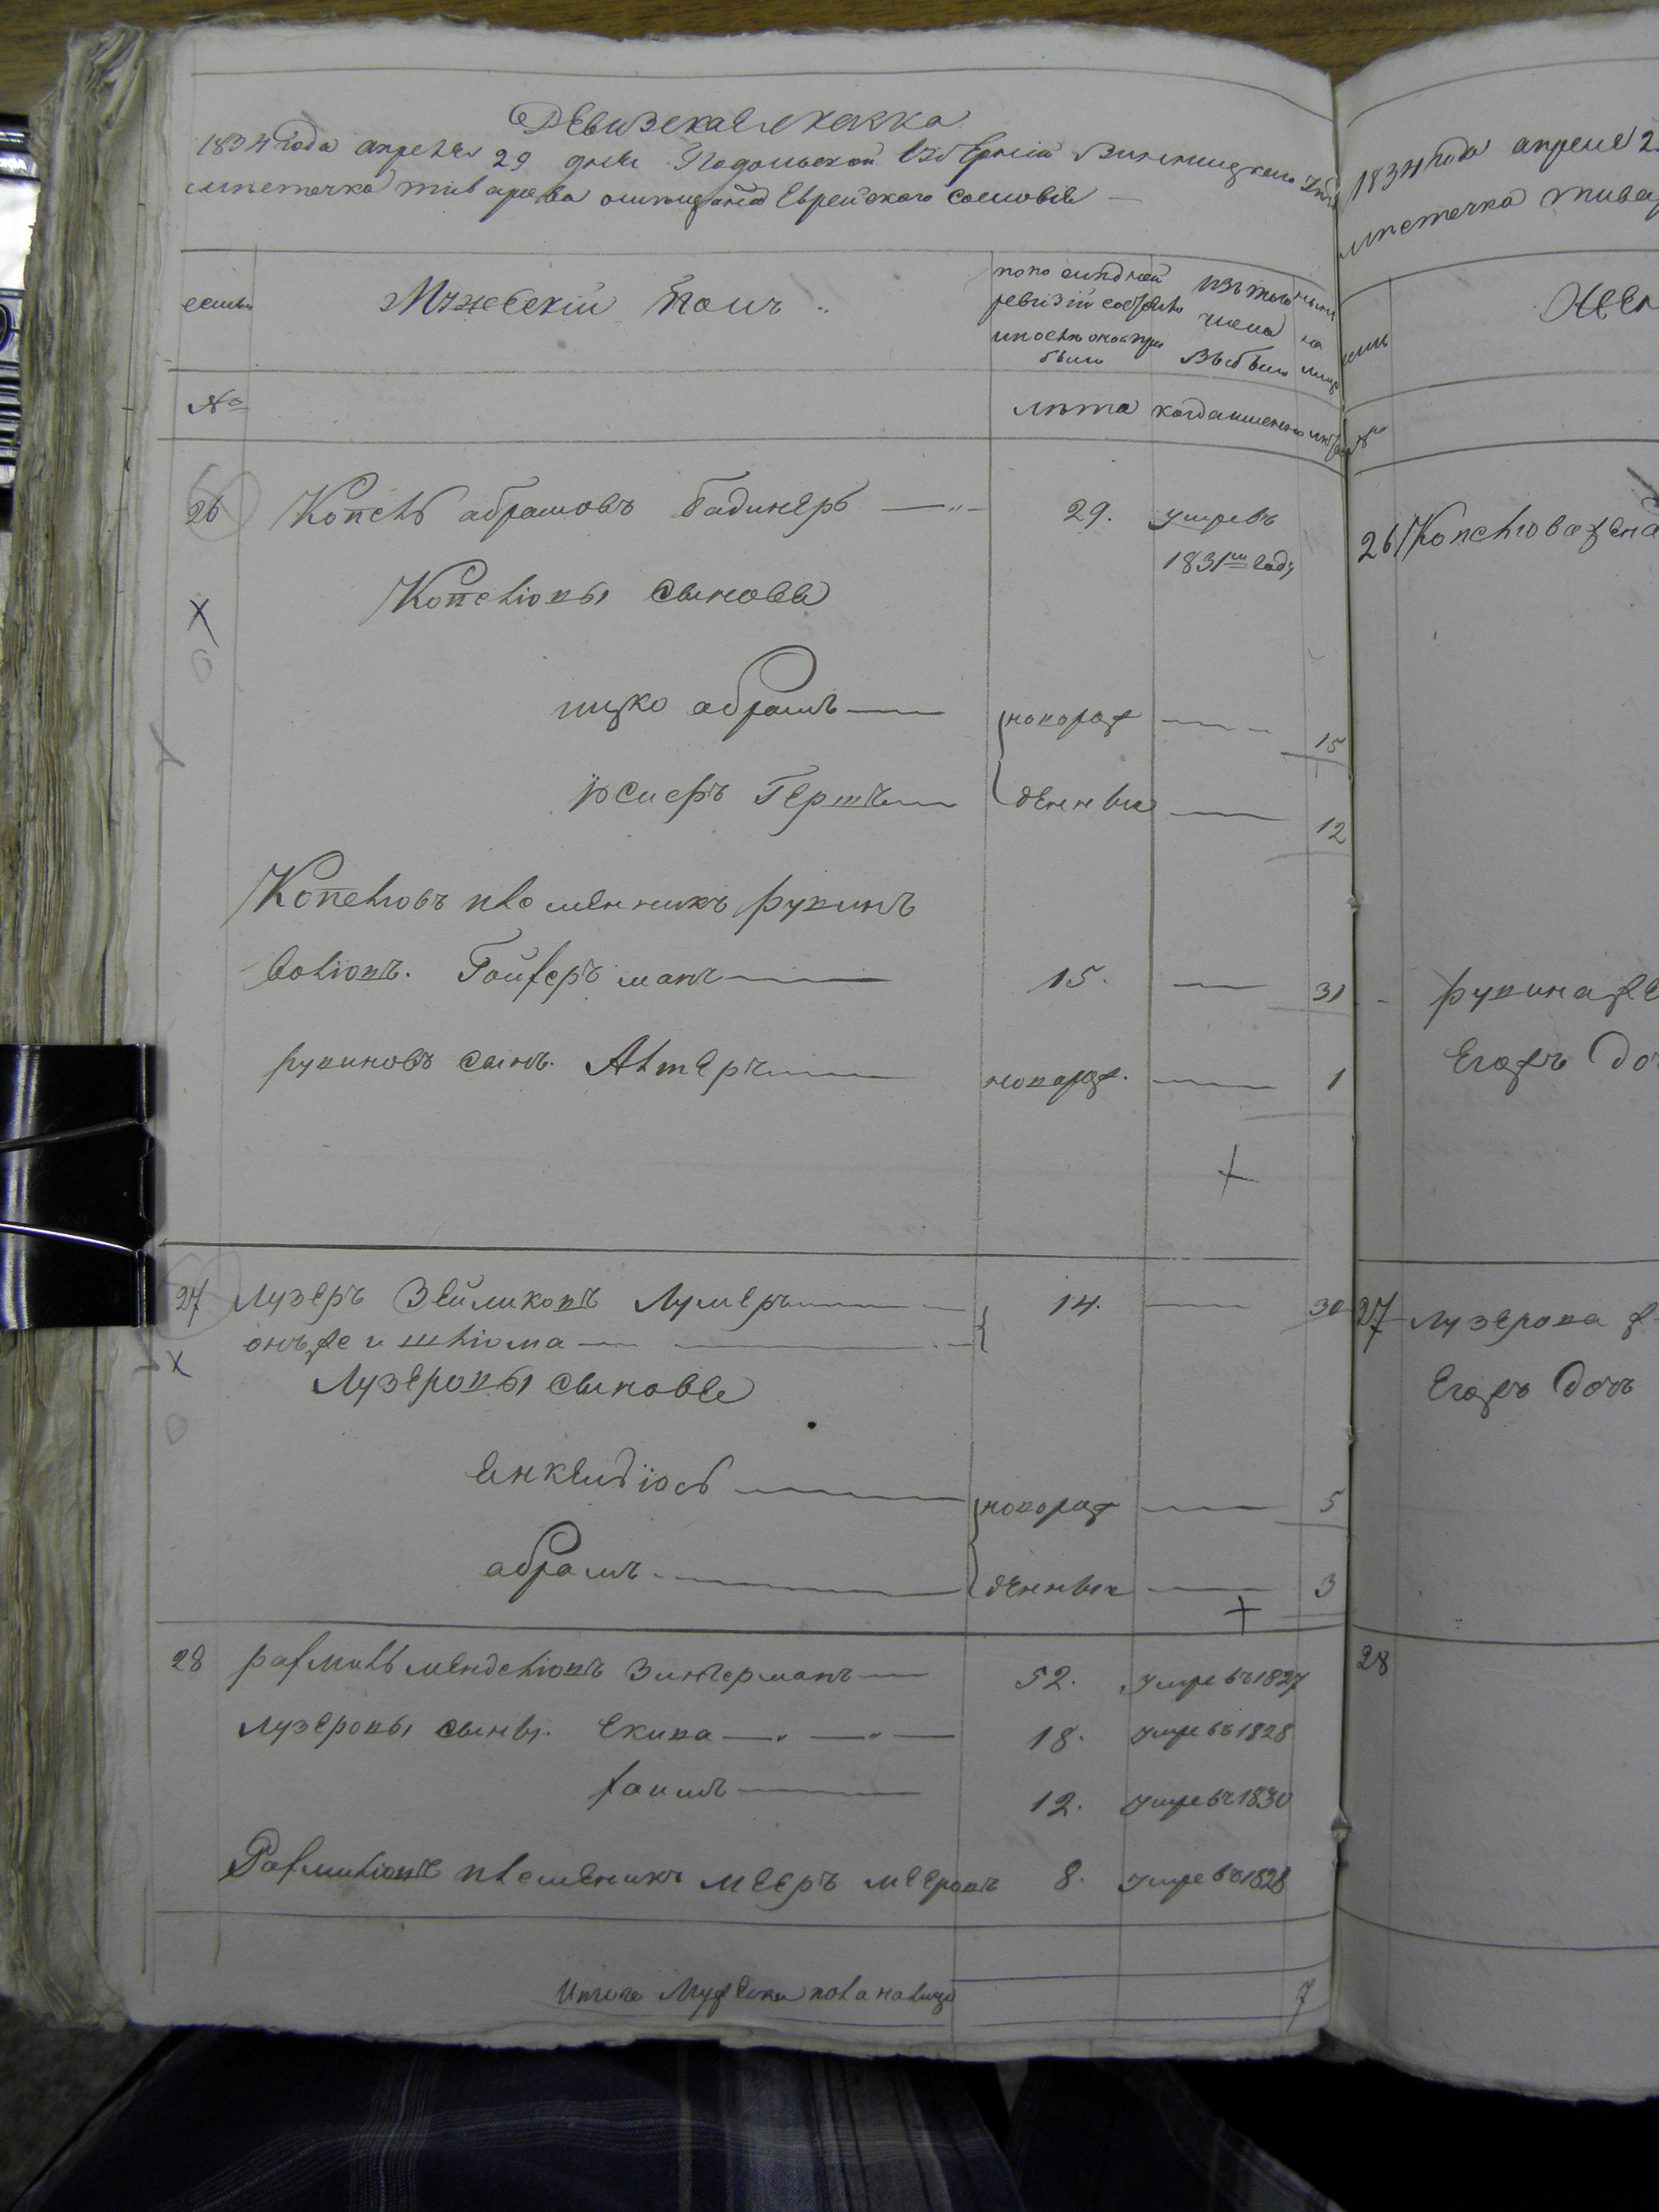 Ревизская сказка
1834 года апреля 29 дня Подольской Губерній Винницкаго
мястечка тиварова ошпищаной Еврейскаго сословія
семьи
Мужескій полъ
по последней
ревизій состояло
и после оной при
было
изъ того
числа
выбыло
ныне
на
лицо
№
лѣта
когда именно
лѣта
26 Копель абрамовъ Бадинеръ
29.
умре въ
1831м году
Копелiовы сыновья
ицко абрамъ
новорож
15
юсиефъ Гершъ
денные
12
Копелiовъ племенникъ рувинъ
волiовъ. Гойхерманъ
15.
31
рувиновъ сынъ. Алтеръ
новорож.
1
27 Лузеръ Зейликовъ Лумеръ
14.
30
онъже и шлiома
Лузеровы сыновья
Янкель iось
новорож
5
абрамъ
денные
3
28 рахмиль менделiовъ Зингерманъ
52.
умре въ 1827
лузеровы сынвя. Екива
18.
умре въ 1828
хаимъ
12.
умре въ 1830
Рахмилiовъ племеникъ мееръ мееровъ
8.
умре въ 1828
Итого Мужеска пола налицо
7
1834 года апреля 2
мястечка тивар
№
26 Копелiова жена
рувина же
Егожъ доч
27 лузерова ж
Егожъ дочъ
28